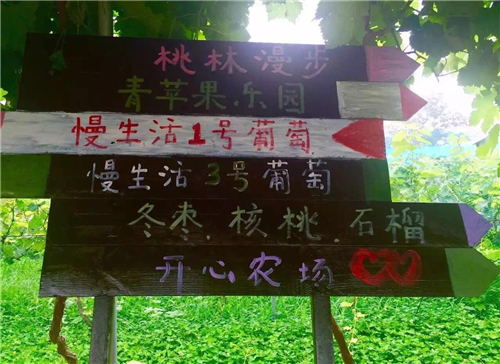 桃林漫步
青苹果乐园
慢生活1号葡萄
慢生活3号葡萄
冬枣.核桃.石榴
开心农场